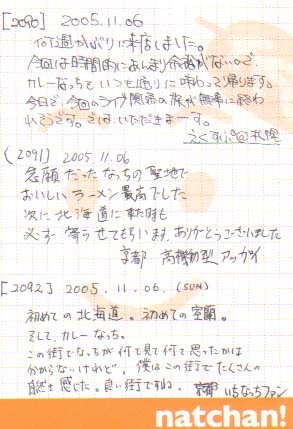 [2090] 2005.11.06
何週かぶりに来店しました。
今回は時間的にあんまり余裕がないので、
カレーなっちをいつも通りに味わって帰ります。
今日で、今回のライブ関係の旅が無事に終わ
れそうです。では、いただきまーす。
えくすぷ@札幌
(2091) 2005.11.06
念願だったなっちの聖地で
おいしいラーメン最高でした
次に北海道に来た時も
必ず寄らせてもらいます、ありがとうございました
京都 高機動型アッガイ
[2092] 2005.11.06.(SUN)
初めての北海道。初めての室蘭。
そして、カレーなっち。
この街でなっちが何を見て何を思ったかは
分からないけれど、僕はこの街でたくさんの
自然を感じた。良い街ですね。京都 いちなっちファン
natchan!